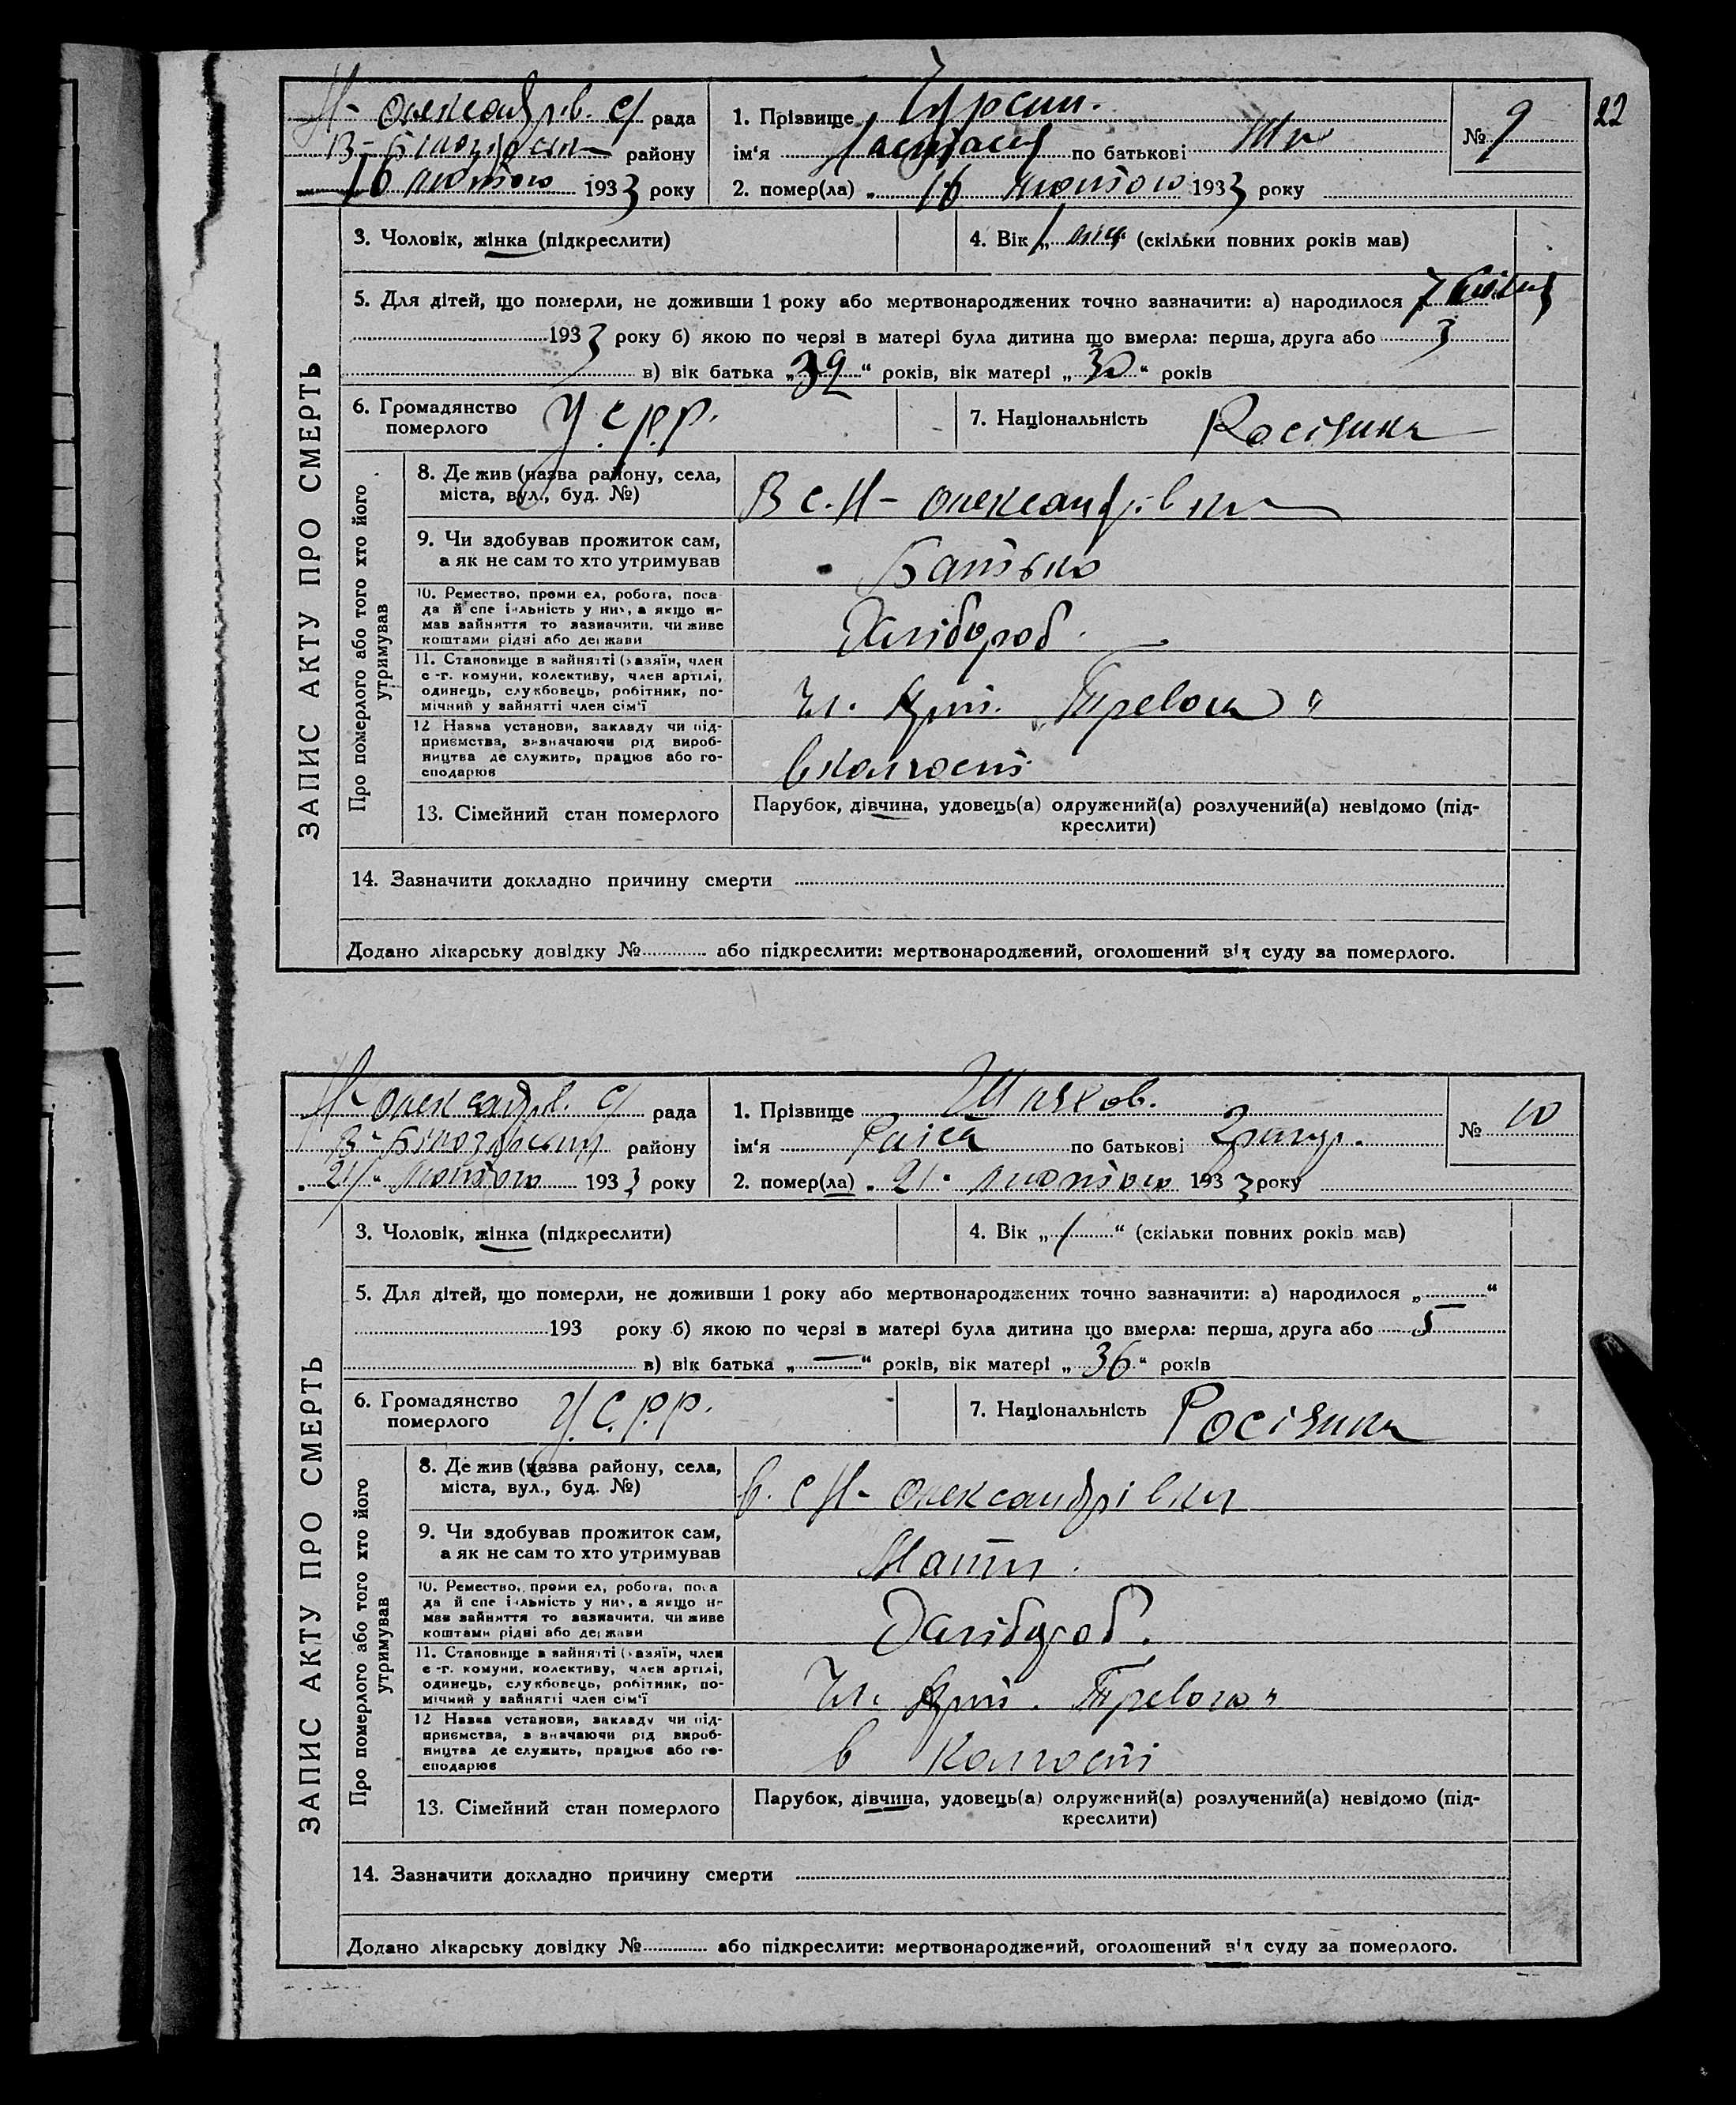 22
Н-Олександрів. С/ рада
В-Білозірськ району
16 лютого 1933 року
1. Прізвище
ім'я по батькові
№ 9
2. помер(ла) „ 16 лютого 1933 року
3. Чоловік, жінка (підкреслити)
4. Вік „1 міс. (скільки повних років мав)
5. Для дітей, що померли, не доживши 1 року або мертвонароджених точно зазначити: а) народилося 7 січня
1933 року б) якою по черзі в матері була дитина що вмерла: перша, друга або 3
в) вік батька „39“ років, вік матері „30“ років
6. Громадянство померлого У.С.Р.Р.
7. Національність Росіянка
ЗАПИС АКТУ ПРО СМЕРТЬ
Про померлого або того хто його утримував
8. Де жив (назва району, села, міста, вул., буд. №) В с. Н-Олександрівки
9. Чи здобував прожиток сам, а як не сам то хто утримував Батько
10. Ремество, проми ел, робота, поса да й спе і льність у них, а якщо не мав зайняття то зазначити, чи живе коштами рідні або держави Хлібороб.
11. Становище в зайнятті (хазяїн, член с.-г. комуни, колективу, член артілі, одинець, службовець, робітник, помічний у зайнятті член сім'ї Чл. Арт. „Тревога“
12 Назва установи, закладу чи підприємства, визначаючи рід виробництва де служить, працює або господарює в колгоспі
13. Сімейний стан померлого Парубок, дівчина, удовець(а) одружений(а) розлучений(а) невідомо (підкреслити)
14. Зазначити докладно причину смерти
Додано лікарську довідку № або підкреслити: мертвонароджений, оголошений від суду за померлого.
Н-Олександрів. С/ рада
В-Білозірський району
„21“ лютого 1933 року
1. Прізвище Шляхов.
ім'я Раіса по батькові
№ 10
2. помер(ла) „21“ лютого 1933 року
3. Чоловік, жінка (підкреслити)
4. Вік „1“ (скільки повних років мав)
5. Для дітей, що померли, не доживши 1 року або мертвонароджених точно зазначити: а) народилося „ “
193 року б) якою по черзі в матері була дитина що вмерла: перша, друга або 5
в) вік батька „—“ років, вік матері „36“ років
6. Громадянство померлого У.С.Р.Р.
7. Національність Росіянка
ЗАПИС АКТУ ПРО СМЕРТЬ
Про померлого або того хто його утримував
8. Де жив (назва району, села, міста, вул., буд. №) в. с Н-Олександрівки
9. Чи здобував прожиток сам, а як не сам то хто утримував Мати.
10. Ремество, проми ел, робота, поса да й спе і льність у них, а якщо не мав зайняття то зазначити, чи живе коштами рідні або держави Хлібороб.
11. Становище в зайнятті (хазяїн, член с.-г. комуни, колективу, член артілі, одинець, службовець, робітник, помічний у зайнятті член сім'ї Чл. Арт. Тревога“
12 Назва установи, закладу чи підприємства, визначаючи рід виробництва де служить, працює або господарює в Колгоспі
13. Сімейний стан померлого Парубок, дівчина, удовець(а) одружений(а) розлучений(а) невідомо (підкреслити)
14. Зазначити докладно причину смерти
Додано лікарську довідку № або підкреслити: мертвонароджений, оголошений від суду за померлого.